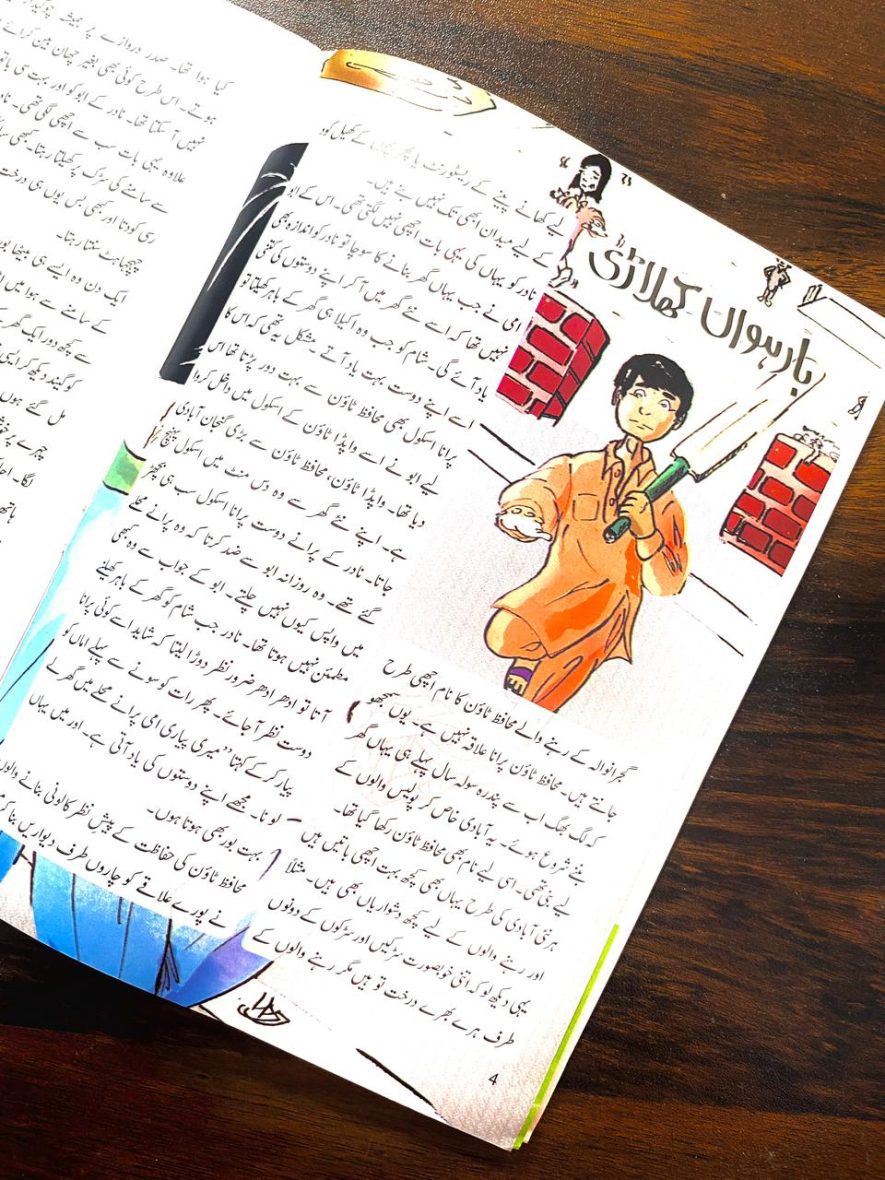 بارہواں کھلاڑی
گجرانوالہ کے رہنے والے محافظ ٹاؤن کا نام اچھی طرح
جانتے ہیں۔ محافظ ٹاؤن پرانا علاقہ نہیں ہے۔ یوں سمجھو
کہ لگ بھگ اب سے پندرہ سولہ سال پہلے ہی یہاں گھر
بننے شروع ہوئے۔ یہ آبادی خاص کر پولیس والوں کے
لیے بنی تھی۔ اسی لیے نام بھی محافظ ٹاؤن رکھا گیا تھا۔
ہر نئی آبادی کی طرح یہاں بھی کچھ بہت اچھی باتیں ہیں
اور رہنے والوں کے لیے کچھ دشواریاں بھی ہیں۔ مثلاً
یہی دیکھ لو کہ اتنی خوبصورت سڑکیں اور سڑکوں کے دونوں
طرف ہرے بھرے درخت تو ہیں مگر رہنے والوں کے
لیے کھانے پینے کے ریسٹورنٹ یا پھر بچوں کے کھیل کود
کے لیے میدان ابھی تک نہیں بنے ہیں۔
نادر کو یہاں کی یہی بات اچھی نہیں لگتی تھی۔ اس کے ابو
امی نے جب یہاں گھر بنانے کا سوچا تو نادر کو اندازہ بھی
نہیں تھا کہ اسے نئے گھر میں آ کر اپنے دوستوں کی کتنی
یاد آئے گی۔ شام کو جب وہ اکیلا ہی گھر کے باہر کھیلتا تو
اسے اپنے دوست بہت یاد آتے۔ مشکل یہ تھی کہ اس کا
پرانا اسکول بھی محافظ ٹاؤن سے بہت دور پڑتا تھا اس
لیے ابو نے اسے واپڈا ٹاؤن کے اسکول میں داخل کروا
دیا تھا۔ واپڈا ٹاؤن، محافظ ٹاؤن سے بڑی گنجان آبادی
ہے۔ اپنے نئے گھر سے وہ دس منٹ میں اسکول پہنچ
جاتا۔ نادر کے پرانے دوست پرانا اسکول سب ہی بچھڑ
گئے تھے۔ وہ روزانہ ابو سے ضد کرتا کہ وہ پرانے محلے
میں واپس کیوں نہیں چلتے۔ ابو کے جواب سے وہ کبھی
مطمئن نہیں ہوتا تھا۔ نادر جب شام کو گھر کے باہر کھیلنے
آتا تو ادھر ادھر ضرور نظر دوڑا لیتا کہ شاید اسے کوئی پرانا
دوست نظر آ جائے۔ پھر رات کو سونے سے پہلے اماں کو
پیار کر کے کہتا ”میری پیاری امی پرانے محلے میں گھر لے
لو نا۔ مجھے اپنے دوستوں کی یاد آتی ہے۔ اور میں یہاں
بہت بور بھی ہوتا ہوں۔
محافظ ٹاؤن کی حفاظت کے پیش نظر کالونی بنانے والوں
نے پورے علاقے کو چاروں طرف دیواریں بنا کر
4
کیا ہوا تھا۔ صدر دروازے پر ہمیشہ
ہوتے۔ اس طرح کوئی بھی بغیر چھان بین کرائے
نہیں آ سکتا تھا۔ نادر کے ابو کو اور بہت سی
علاوہ یہی بات سب سے اچھی لگی تھی۔
سے سامنے کی سڑک پر کھیلتا رہتا۔ کبھی
رسی کودتا اور کبھی بس یوں ہی درخت
چہچہاہٹ سنتا رہتا۔
ایک دن وہ ایسے ہی بیٹھا
کے سامنے سے ہوا میں
سے کچھ دور ایک گھر
کو گیند دیکھ کر ایسی
مل گئے ہوں
چہرے پر
لگا۔
ہاتھ